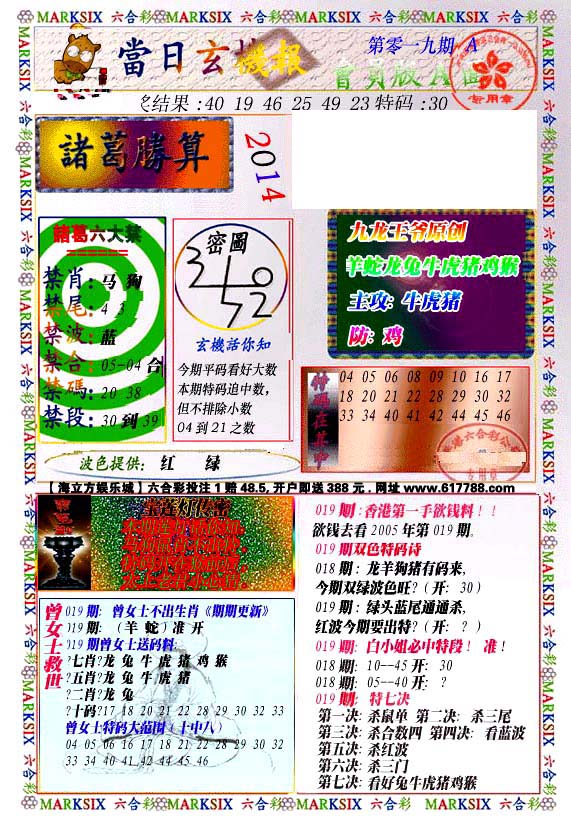 MARKSIX 六合彩 MARKSIX 六合彩 MARKSIX 六合彩 MARKSIX 六合彩
當日玄機報
第零一九期 A
會員版A
专用章
结果:40 19 46 25 49 23特码:30
諸葛勝算
2014
諸葛六大禁
禁肖:马狗
禁尾:4 3
禁波:蓝
禁合:05-04合
禁碼:20 38
禁段:30到39
密圖
玄機活你知
今期平码看好大数
本期特码追中数,
但不排除小数
04到21之数
九龙王爷原创
羊蛇龙兔牛虎猪鸡猴
主攻:牛虎猪
防:鸡
04 05 06 08 09 10 16 17
18 20 21 22 28 29 30 32
33 34 40 41 42 44 45 46
专用章
波色提供: 红 绿
【海立方娱乐城】六合彩投注1赔48.5,开户即送388元.网址www.617788.com
宝莲灯传密
曾女士救世
019期: 曾女士不出生肖《期期更新》
019期: (羊 蛇)准 开
019期曾女士送码料:
?七肖?龙 兔 牛 虎 猪 鸡 猴
?五肖?龙 兔 牛 虎 猪
?二肖?龙 兔
?十码?17 18 20 21 22 28 29 30 32 33
曾女士特码大范围(十中八)
04 05 06 16 17 18 21 22 28 29 30 32
33 34 40 41 42 44 45 46
019期:香港第一手欲钱料!!
欲钱去看2005年第019期。
019期双色特码诗
018期:龙羊狗猪有码来,
今期双绿波色旺?(开: 30)
019期:绿头蓝尾通通杀,
红波今期要出特?(开: ?)
019期: 白小姐必中特段! 准!
018期: 10--45开: 30
018期: 05--40开: ?
019期: 特七决
第一决:杀鼠单 第二决: 杀三尾
第三决:杀合数四 第四决: 看蓝波
第五决:杀红波
第六决:杀三门
第七决:看好兔牛虎猪鸡猴
MARKSIX 六合彩 MARKSIX 六合彩 MARKSIX 六合彩 MARKSIX 六合彩